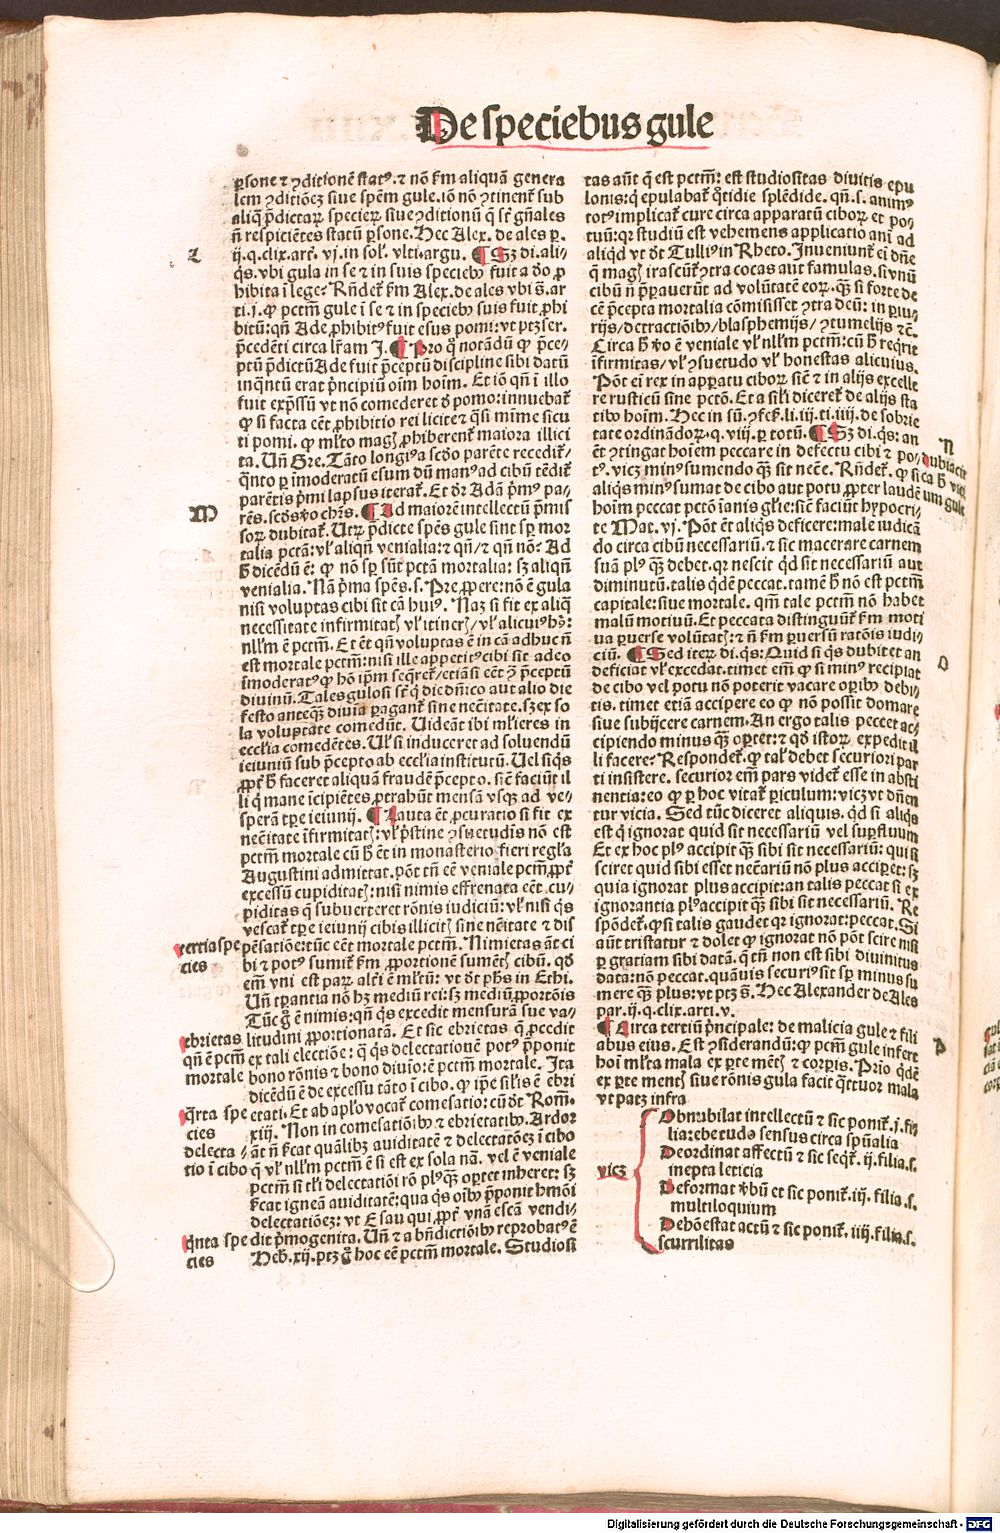 De speciebus gule
ꝑsone ⁊ ꝯditionē statꝰ. ⁊ nō ẜm aliquā genera
lem ꝯditiōeꝫ siue spēm gule. iō nō ꝯtinenť sub
aliq̄ p̄dictaꝝ specieꝝ siue ꝯditionū q̄ sť gn̄ales
n̄ respiciētes statū ꝑsone. Hec Alex. de ales ꝑ.
ij. q. clix. arť. vj. in sol̛. vlti. argu. ¶ Sꝫ di. ali⸗
L
q̄s. vbi gula in se ⁊ in suis speciebꝫ fuit a deo ꝓ
hibita ī lege? Rn̄deť ẜm Alex. de ales vbi s̄. ar
ti. j. ꝙ pctm̄ gule ī se ⁊ in speciebꝫ suis fuit ꝓhi
bitū: qn̄ Ade ꝓhibitꝰ fuit esus pomi: vt ptꝫ ser.
p̄cedēti circa lr̄am J. ¶ Pro q̊ notādū ꝙ p̄ce⸗
ptū p̄dictū Ade fuit p̄ceptū discipline sibi datū
inq̄ntū erat p̄ncipiū oīm hoīm. Et iō qn̄ ī illo
fuit exp̄ssū vt nō comederet d̄ pomo: innuebať
ꝙ si facta eēt ꝓhibitio rei licite ⁊ q̄si mīme sicu
ti pomi. ꝙ ml̛to magꝭ ꝓhiberenť maiora illici
ta. Un̄ Gre. Tāto longiꝰ a scdo parēte recediť⸗
q̄nto ꝑ īmoderatū esum dū manꝰ ad cibū tēdiť
parētis p̄mi lapsus iterať. Et dr̄ Adā p̄mꝰ pa⸗
rēs. scds v̊o chr̄s. ¶ Ad maiorē intellectū p̄mis
M
soꝝ dubitať. Utꝝ p̄dicte spēs gule sint sꝑ mor
talia pctā: vl̛ aliqn̄ venialia: ⁊ qn̄ / ⁊ qn̄ nō? Ad
ħ dicēdū ē: ꝙ nō sꝑ sūt pctā mortalia: sꝫ aliqn̄
venialia. Nā p̄ma spēs. s. Pre ꝓpere: nō ē gula
nisi voluptas cibi sit cā huiꝰ. Naꝫ si fit ex aliq̄
necessitate infirmitatꝭ vl̛ itinerꝭ / vl̛ alicuiꝰ hꝫ:
nll̄m ē pctm̄. Et ēt qn̄ voluptas ē in cā adhuc n̄
est mortale pctm̄: nisi ille appetitꝰ cibi sit adeo
īmoderatꝰ ꝙ hō ip̄m seq̄reť / etiā si eēt ꝯ̄ p̄ceptū
diuinū. Tales gulosi sť q̄ die dn̄ico aut alio die
festo anteqꝫ diuīa ꝑaganť sine nec̄itate. sꝫ ex so
la voluptate comedūt. Uideāt ibi ml̛ieres in
ecclīa comedētes. Ul̛ si induceret ad soluendū
ieiuniū sub p̄cepto ab ecclīa institutū. Uel siq̄s
ꝓpť ħ faceret aliquā fraudē p̄cepto. sic̄ faciūt il
li q̄ mane īcipiētes ꝓtrahūt mensā vsqꝫ ad ve⸗
sperā tꝑe ieiunij. ¶ Lauta ēt ꝓcuratio si fit ex
nec̄itate īfirmitatꝭ: vl̛ p̄stine ꝯsuetudīs nō est
pctm̄ mortale cū ħ ēt in monasterio fieri regl̄a
Augustini admittat. pōt tn̄ eē veniale pctm̄ ꝓpť
excessū cupiditatꝭ: nisi nimis effrenata eēt cu⸗
piditas q̄ subuerteret rōnis iudiciū: vl̛ nisi q̄s
vescať tꝑe ieiunij cibis illicitꝭ sine nec̄itate ⁊ dis
tertia spe
cies
pēsatiōe: tūc eēt mortale pctm̄. Nimietas āt ci
bi ⁊ potꝰ sumiť ẜm ꝓportionē sumētꝭ cibū. qd̄
em̄ vni est parꝝ alťi ē ml̛tū: vt dr̄ phs in Ethi.
Un̄ tꝑantia nō hꝫ mediū rei: sꝫ mediū ꝓportōis
Tūc g̊ ē nimis: qn̄ q̄s excedit mensurā sue va⸗
ebrietas
qn̄ ē pctm̄
mortale
litudini ꝓportionatā. Et sic ebrietas q̄ ꝓcedit
ex tali electiōe: q̄ q̄s delectationē potꝰ p̄ponit
bono rōnis ⁊ bono diuīo: ē pctm̄ mortale. Ita
dicēdū ē de excessu tāto ī cibo. ꝙ ip̄e sil̛is ē ebri
q̄rta spe
cies
delecta⸗
tio ī cibo
etati. Et ab apl̛o vocať comesatio: cū dr̄ Rom̄.
xiij. Non in comesatiōibꝫ ⁊ ebrietatibꝫ. Ardor
āt n̄ ẜcat qualibꝫ auiditatē ⁊ delectatōeꝫ ī cibo
q̄ vl̛ nll̄m pctm̄ ē si est ex sola nā. vel ē veniale
pctm̄ si tl̛i delectatiōi rō plꝰ qꝫ oꝑtet inheret: sꝫ
ẜcat igneā auiditatē: qua q̄s oībꝫ p̄ponit hm̄oi
delectatiōeꝫ: vt Esau qui ꝓpť vnā escā vendi⸗
q̄nta spe
cies
dit p̄mogenita. Un̄ ⁊ a bn̄dictiōibꝫ reprobatꝰ ē
Heb. xij. ptꝫ g̊ hoc eē pctm̄ mortale. Studiosi
tas aūt q̄ est pctm̄: est studiositas diuitis epu
lonis: q̄ epulabať q̊tidie splēdide. qn̄. s. animꝰ
totꝰ implicať cure circa apparatū ciboꝝ et po⸗
tuū: qꝛ studiū est vehemens applicatio anī ad
aliqd̄ vt dr̄ Tulliꝰ in Rheto. Inueniunť ei dn̄e
q̄ magꝭ irascunť ꝯtra cocas aut famulas. si vnū
cibū n̄ p̄ꝑauerūt ad volūtatē eoꝝ. qꝫ si forte de
cē p̄cepta mortalia cōmisisset ꝯtra deū: in ꝑiu⸗
rijs / detractiōibꝫ / blasphemijs / ꝯtumelijs ⁊c̄.
Circa ħ v̊o ē veniale vl̛ nll̄m pctm̄: cū ħ req̄rit
īfirmitas / vl̛ ꝯsuetudo vl̛ honestas alicuius.
Pōt ei rex in apꝑatu ciboꝝ sic̄ ⁊ in alijs excelle
re rusticū sine pctō. Et a sil̛i diceret de alijs sta
tibꝫ hoīm. Hec in sū. ꝯfes. li. iij. ti. iiij. de sobrie
tate ordināoꝝ. q. viij. ꝑ totū. ¶ Sꝫ di. q̄s: an
N
dubiacir
ca ħ vici
um gule
ēt ꝯtingat hoīem peccare in defectu cibi ⁊ po⸗
tꝰ. vicꝫ minꝰ sumendo qꝫ sit nec̄e. Rn̄deť. ꝙ si
aliq̄s minꝰ sumat de cibo aut potu ꝓpter laudē
hoīm peccat pctō īanis gl̄ie: sic̄ faciūt hypocri⸗
te Mat. vj. Pōt ēt aliq̄s deficere: male iudicā
do circa cibū necessariū. ⁊ sic macerare carnem
suā plꝰ qꝫ debet. qꝛ nescit qd̄ sit necessariū aut
diminutū. talis qd̄ē peccat. tamē ħ nō est pctm̄
capitale: siue mortale. qm̄ tale pctm̄ nō habet
malū motiuū. Et peccata distinguūť ẜm moti
ua ꝑuerse volūtatꝭ: ⁊ n̄ ẜm ꝑuersū ratōis iudi⸗
ciū. ¶ Sed iteꝝ di. q̄s: Quid si q̄s dubitet an
O
deficiat vl̛ excedat. timet em̄ ꝙ si minꝰ recipiat
de cibo vel potu nō poterit vacare oꝑibꝫ debi⸗
tis. timet etiā accipere eo ꝙ nō possit domare
siue subijcere carnem. An ergo talis peccet ac⸗
cipiendo minus qꝫ oꝑtet: ⁊ qd̄ istoꝝ expedit il
li facere? Respondeť. ꝙ tal̛ debet securiori par
ti insistere. securior em̄ pars videť esse in absti
nentia: eo ꝙ ꝑ hoc vitať ꝑiculum: vicꝫ vt dn̄en
tur vicia. Sed tūc diceret aliquis. qd̄ si aliq̄s
est q̄ ignorat quid sit necessariū vel suꝑfluum
Et ex hoc plꝰ accipit qꝫ sibi sit necessariū: qui si
sciret quid sibi esset nec̄ariū nō plus acciꝑet: sꝫ
quia ignorat plus accipit: an talis peccat si ex
ignorantia plꝰ accipit qꝫ sibi sit necessariū. Re
spōdeť. ꝙ si talis gaudet qꝛ ignorat: peccat. Si
aūt tristatur ⁊ dolet ꝙ ignorat nō pōt scire nisi
ꝑ gratiam sibi datā. q̄ tn̄ non est sibi diuinitus
data: nō peccat. quāuis securiꝰ sit sꝑ minus su
mere qꝫ plus: vt ptꝫ s̄. Hec Alexander de Ales
par. ij. q. clix. arti. v.
¶ Circa tertiū p̄ncipale: de malicia gule ⁊ fili
P
abus eius. Est ꝯsiderandū: ꝙ pctm̄ gule infert
hoī ml̛ta mala ex ꝑte mētꝭ ⁊ corꝑis. Prīo qd̄ē
ex ꝑte mentꝭ siue rōnis gula facit q̄ttuor mala
vt patꝫ infra
vicꝫ
Obnubilat intellectū ⁊ sic poniť. j. fi⸗
lia: ebetudo sensus circa spūalia
Deordinat affectū ⁊ sic seq̄ť. ij. filia. s.
inepta leticia
Deformat v̊bū et sic poniť. iij. filia. s.
multiloquium
Dehōestat actū ⁊ sic poniť. iiij. filia. s.
scurrilitas
Digitalisierung gefördert durch die Deutsche Forschungsgemeinschaft - DFG